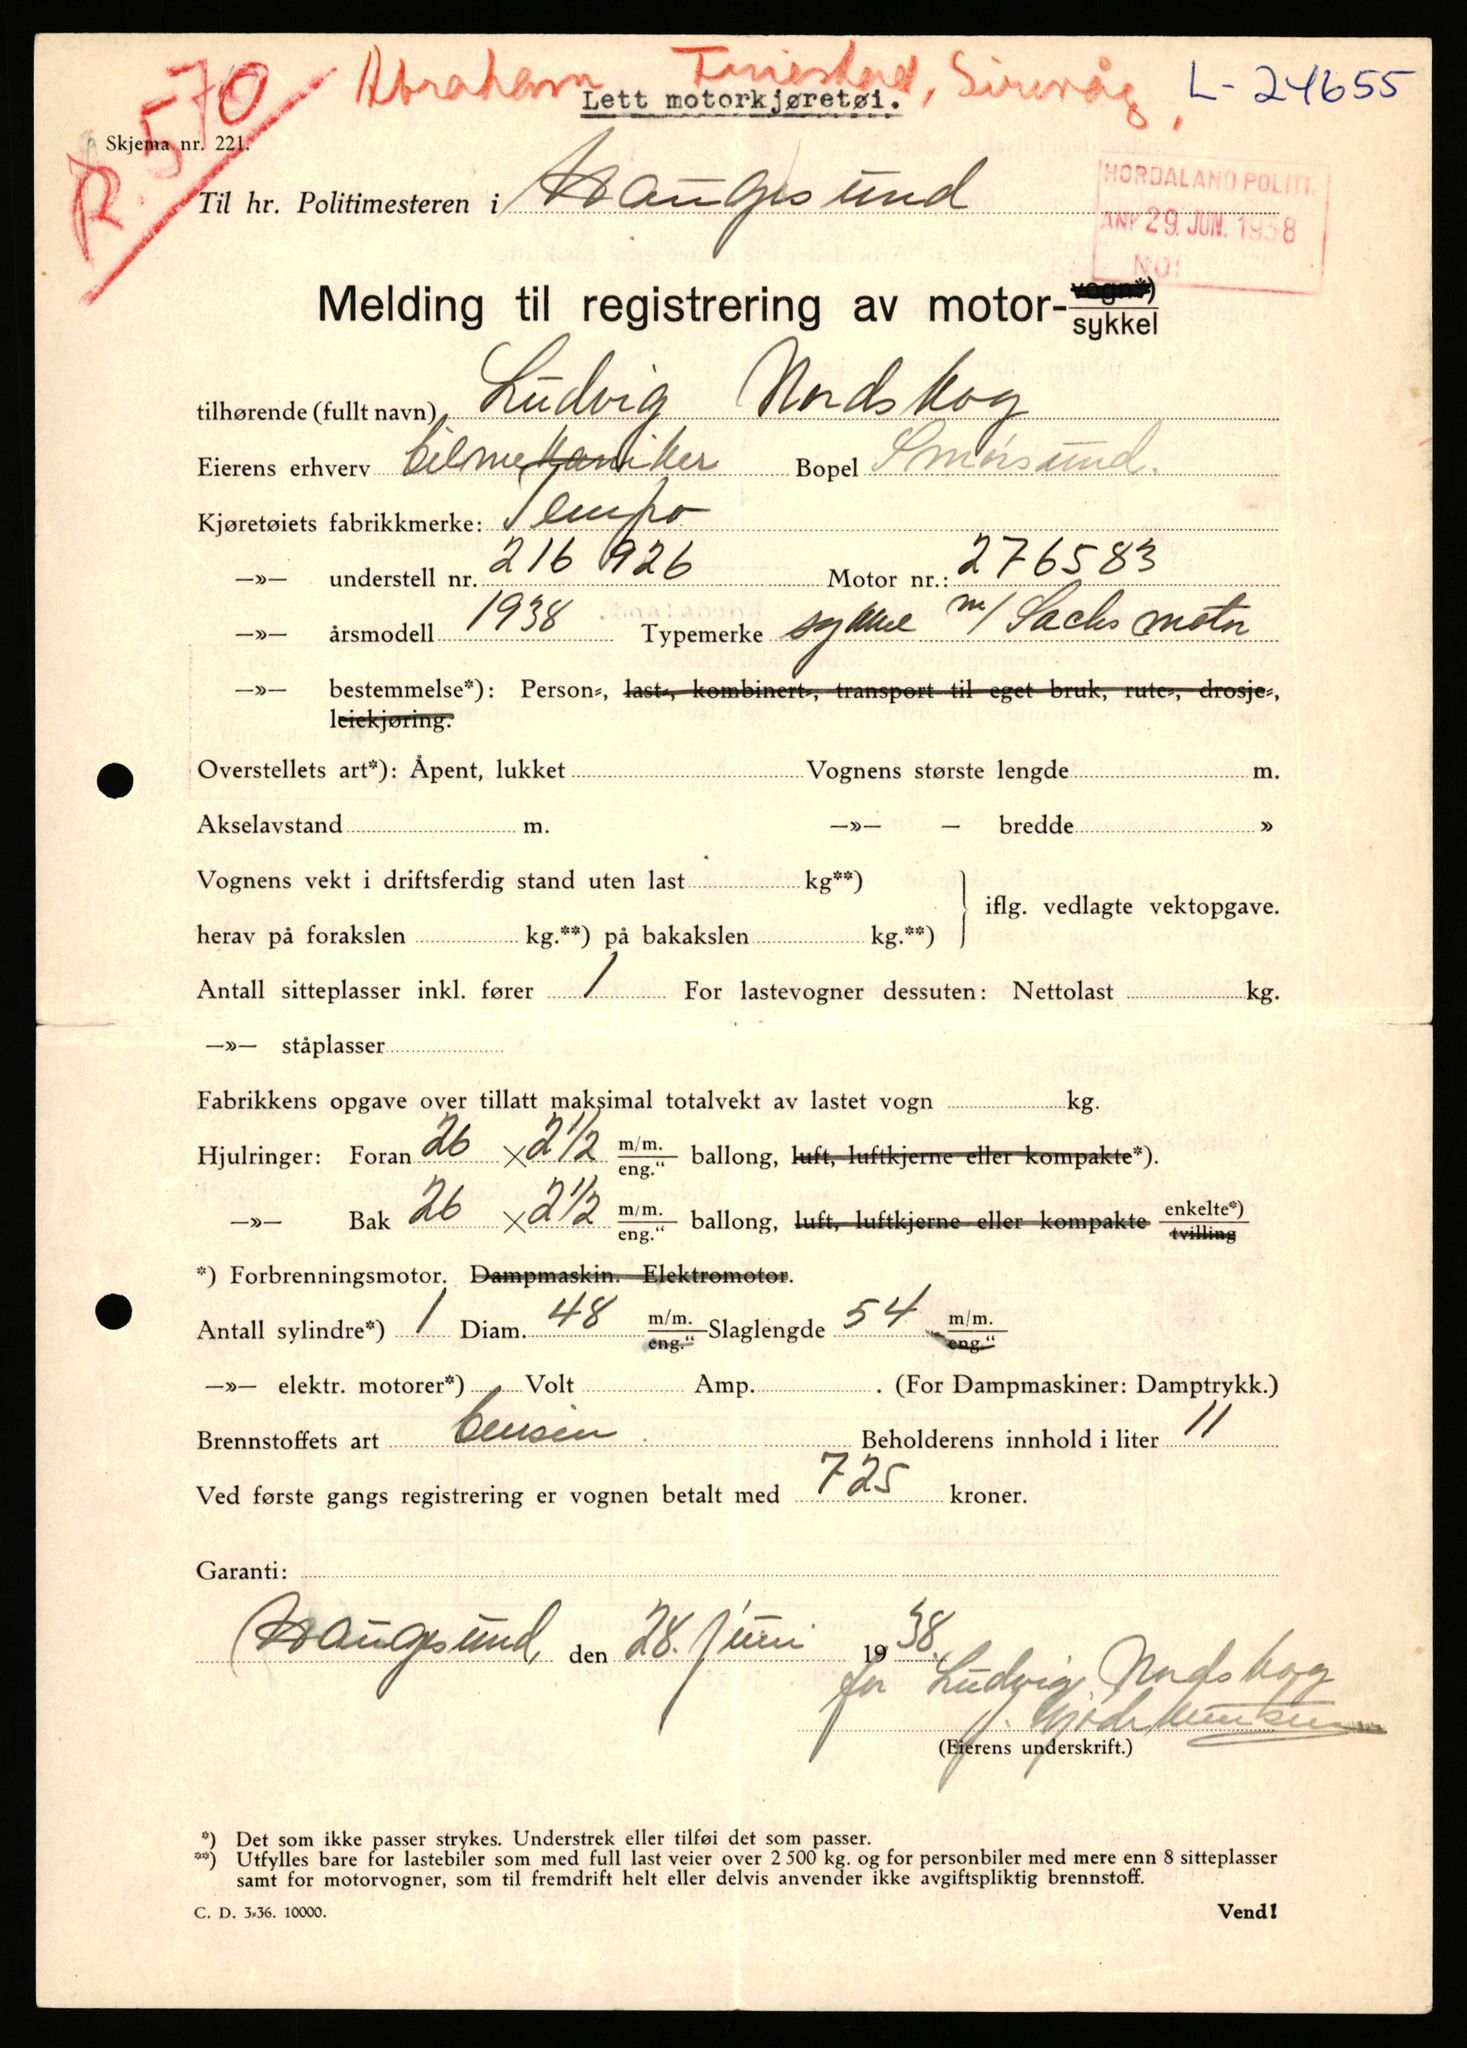 R. 570
Abraham Tunestved, Sirevåg, L- 24655
Lett motorkjøretøi.
Skjema nr. 221.
HORDALAND POLITI.
ANK 29. JUN. 1938
NO:
Til hr. Politimesteren i Haugesund
Melding til registrering av motor- vogn*) sykkel
tilhørende (fullt navn) Ludvig Nordskog
Eierens erhverv bilmekaniker Bopel Smörsund.
Kjøretøiets fabrikkmerke: Tempo
—»— understell nr. 216 926 Motor nr.: 276583
—»— årsmodell 1938 Typemerke sykkel m/ Sachs motor
—»— bestemmelse*): Person-, last-, kombinert-, transport til eget bruk, rute-, drosje-,
leiekjøring.
Overstellets art*): Åpent, lukket Vognens største lengde m.
Akselavstand m. —»— — bredde »
Vognens vekt i driftsferdig stand uten last kg**)
iflg. vedlagte vektopgave.
herav på forakslen kg.**) på bakakslen kg.**)
Antall sitteplasser inkl. fører 1 For lastevogner dessuten: Nettolast kg.
—»— ståplasser
Fabrikkens opgave over tillatt maksimal totalvekt av lastet vogn kg.
Hjulringer: Foran 26 × 2 1/2 m/m. eng." ballong, luft, luftkjerne eller kompakte*).
—»— Bak 26 × 2 1/2 m/m. eng." ballong, luft, luftkjerne eller kompakte enkelte*) tvilling
*) Forbrenningsmotor. Dampmaskin. Elektromotor.
Antall sylindre*) 1 Diam. 48 m/m. eng." Slaglengde 54 m/m. eng."
—»— elektr. motorer*) Volt Amp. . (For Dampmaskiner: Damptrykk.)
Brennstoffets art bensin Beholderens innhold i liter 11
Ved første gangs registrering er vognen betalt med 725 kroner.
Garanti:
Haugesund, den 28. juni 1938.
for Ludvig Nordskog
(Eierens underskrift.)
*) Det som ikke passer strykes. Understrek eller tilføi det som passer.
**) Utfylles bare for lastebiler som med full last veier over 2 500 kg. og for personbiler med mere enn 8 sitteplasser
samt for motorvogner, som til fremdrift helt eller delvis anvender ikke avgiftspliktig brennstoff.
C. D. 3-36. 10000. Vend!